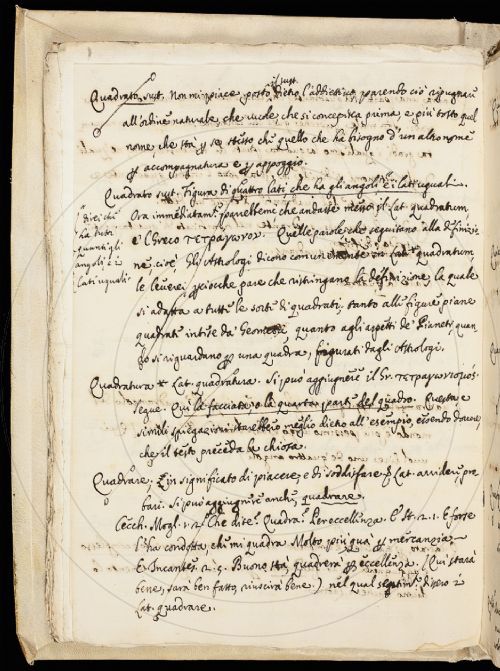 il sust.
Quadrato sust. Non mi piace posto dietro l'addiettivo, parendo ciò ripugnare
all'ordine naturale, che vuole, che si concepisca prima, e più tosto quel
nome che sta p se stesso che quello che ha bisogno d'un altro nome
p accompagnatura e p appoggio.
Quadrato sust. Figura di quattro lati, che ha gli angoli e i lati uguali.
direi, che
ha tutti
quanti gli
angoli e i
lati uguali
Ora immediatam. parrebbemi che andasse messo il Lat. quadratum,
e 'l Greco τετράγωνον. Quelle parole che seguitano alla definizio-
ne, cioè, Gli Astrologi dicono comunemente in Lat. quadratum
le leverei, perciocchè pare che ristringano la definizione, la quale
si adatta a tutte le sorti di quadrati, tanto alle figure piane
quadrate intese da' Geometri quanto agli aspetti de' Pianeti, quan-
do si riguardano p una quadra, figurati dagli Astrologi.
Quadratura Lat. quadratura. Si può aggiugnere il Gr. τετραγωνισμός.
segue. Qui la facciata, o la quarta parte del quadro. Queste e
simili spiegazioni starebbero meglio dietro all'esempio, essendo dovere,
che il testo preceda la chiosa.
Quadrare. in significato di piacere, e di soddisfare Lat. arridere, pro-
bari. Si può aggiugnere anche quadrare.
Cecch. Mogl. 1. 2. Che dite? Quadra? Per eccellenza. E St. 2. 1. E forse
l'ho condotta, che mi quadra Molto più qua p mercanzia.
E Incantes. 2. 5. Buono sta, quadrerà p eccellenza. (Qui starà
bene, sarà ben fatto, riuscirà bene.) nel qual sentim.
Lat. quadrare.